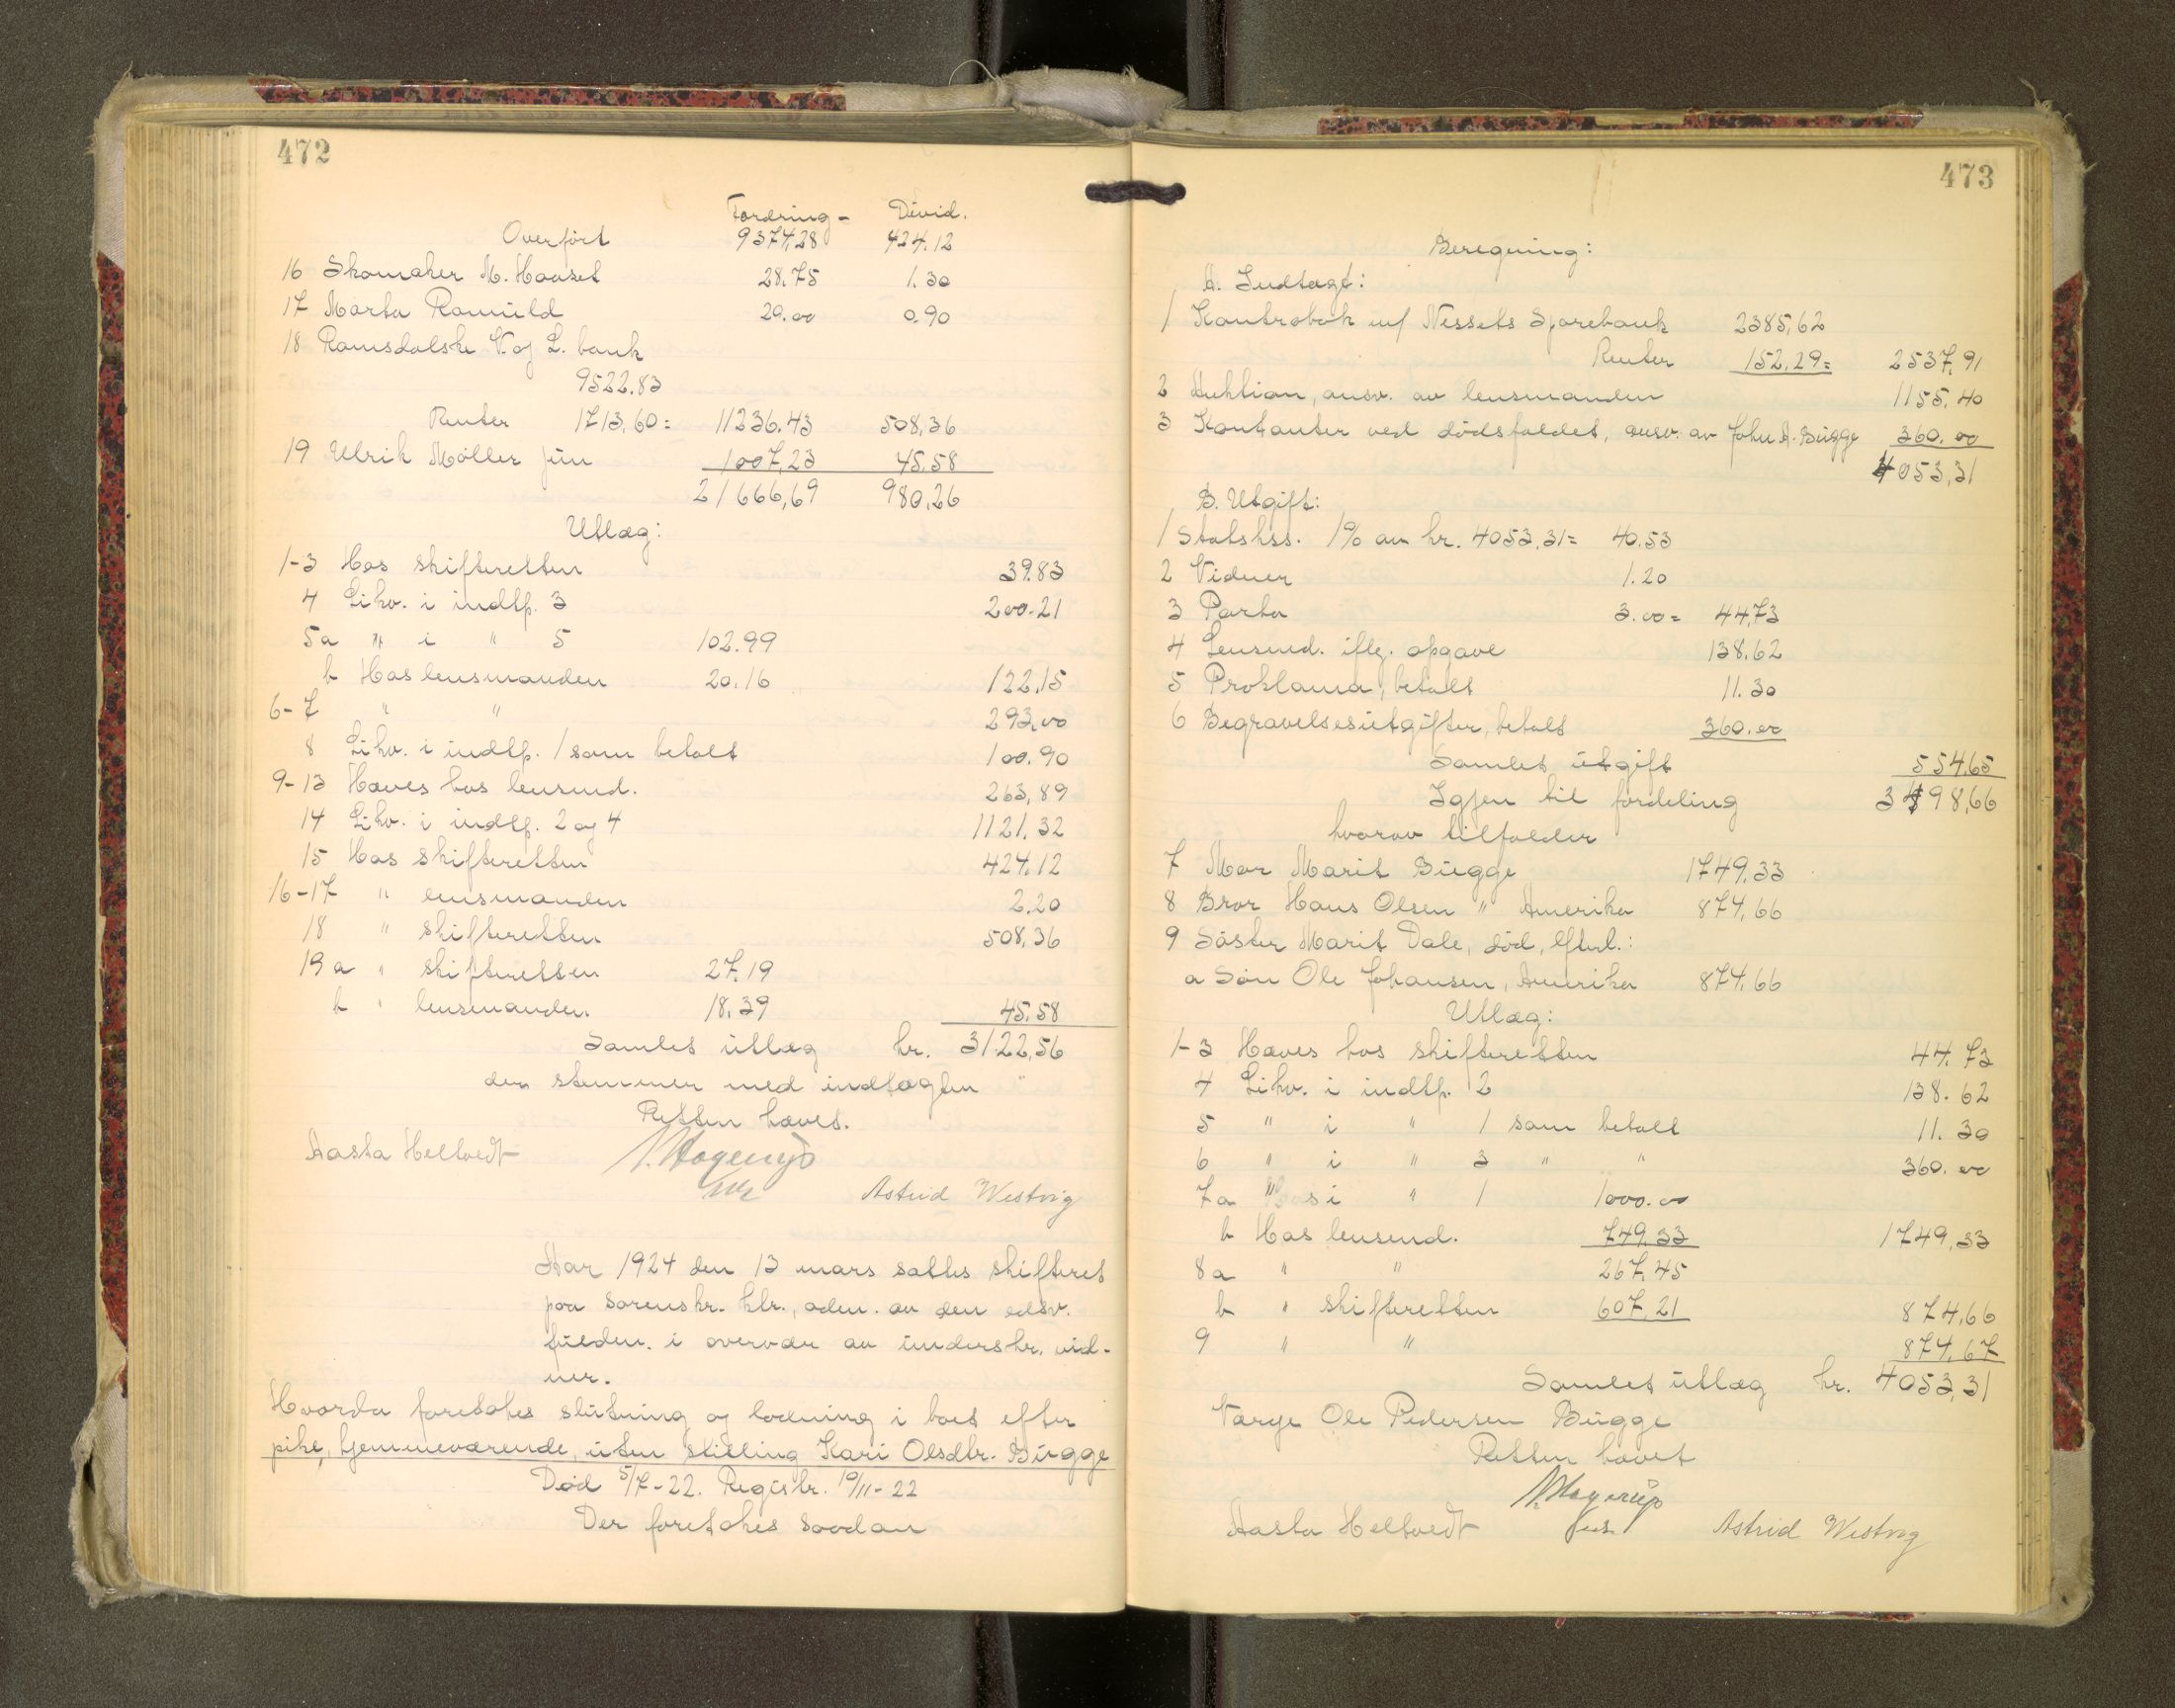 472
Fordring- Divid.
Overført 9374,28 424.12
16 Skomaker M. Hauset 28.75 1.30
17 Marta Ranuild 20.00 0.90
18 Romsdalske V. og L. bank
9522.83
Renter 1713,60 = 11236.43 508,36
19 Ulrik Møller jun 1007,23 45.58
21666,69 980,26
Utlæg:
1-3 Hos skifteretten 39.83
4 Likv. i indtp. 3 200.21
5a " i " 5 102.99
b Hos lensmanden 20.16 122,15
6-7 " " 293,00
8 Likv. i indtp. 1 som betalt 100.90
9-13 Hæves hos lensmd. 263,89
14 Likv. i indtp. 2 og 4 1121,32
15 Hos skifteretten 424,12
16-17 " lensmanden 2.20
18 " skifteretten 508,36
19 a " skifteretten 27,19
b " lensmanden. 18,39 45,58
Samlet utlæg kr. 3122,56
der stemmer med indtægten
Retten hævet.
Aasta Heltvedt
Astrid Westvig
Aar 1924 den 13 mars sattes skifteret
paa sorenskr. ktr., adm. av den edsv.
fuldm. i overvær av underskr. vid-
ner.
Hvorda foretokes slutning og lodning i boet efter
pike, hjemmeværende, uten stilling Kari Olsdtr. Bugge
Død 5/7-22. Registr. 10/11-22
Der foretokes saadan
473
Beregning:
A. Indtægt:
1 Kontrabok m/ Nessets Sparebank 2385,62
Renter 152.29 = 2537,91
2 Auktion, ansv. av lensmanden 1155,40
3 Kontanter ved dødsfaldet, ansv. av John A. Bugge 360.00
4053,31
B. Utgift:
1 Statskss. 1% av kr. 4053,31 = 40,53
2 Vidner 1.20
3 Porto 3.00 = 44,73
4 Lensmd. iflg. opgave 138,62
5 Proklama, betalt 11.30
6 Begravelsesutgifter, betalt 360.00
Samlet utgift 554,65
Igjen til fordeling 3498,66
hvorav tilfalder
7 Mor Marit Bugge 1749,33
8 Bror Hans Olsen " Amerika 874,66
9 Søster Marit Dale, død, efterl.:
a Søn Ole Johansen, Amerika 874,66
Utlæg:
1-3 Hæves hos skifteretten 44.73
4 Likv. i indtp. 2 138.62
5 " i " 1 som betalt 11.30
6 " i " 3 " " 360.00
7a " i " 1 1000.00
b Hos lensmd. 749.33 1749,33
8a " " 267,45
b " skifteretten 607,21 874,66
9 " " 874,67
Samlet utlæg kr. 4053,31
Værge Ole Pedersen Bugge
Retten hævet
Aasta Heltvedt
Astrid Westvig